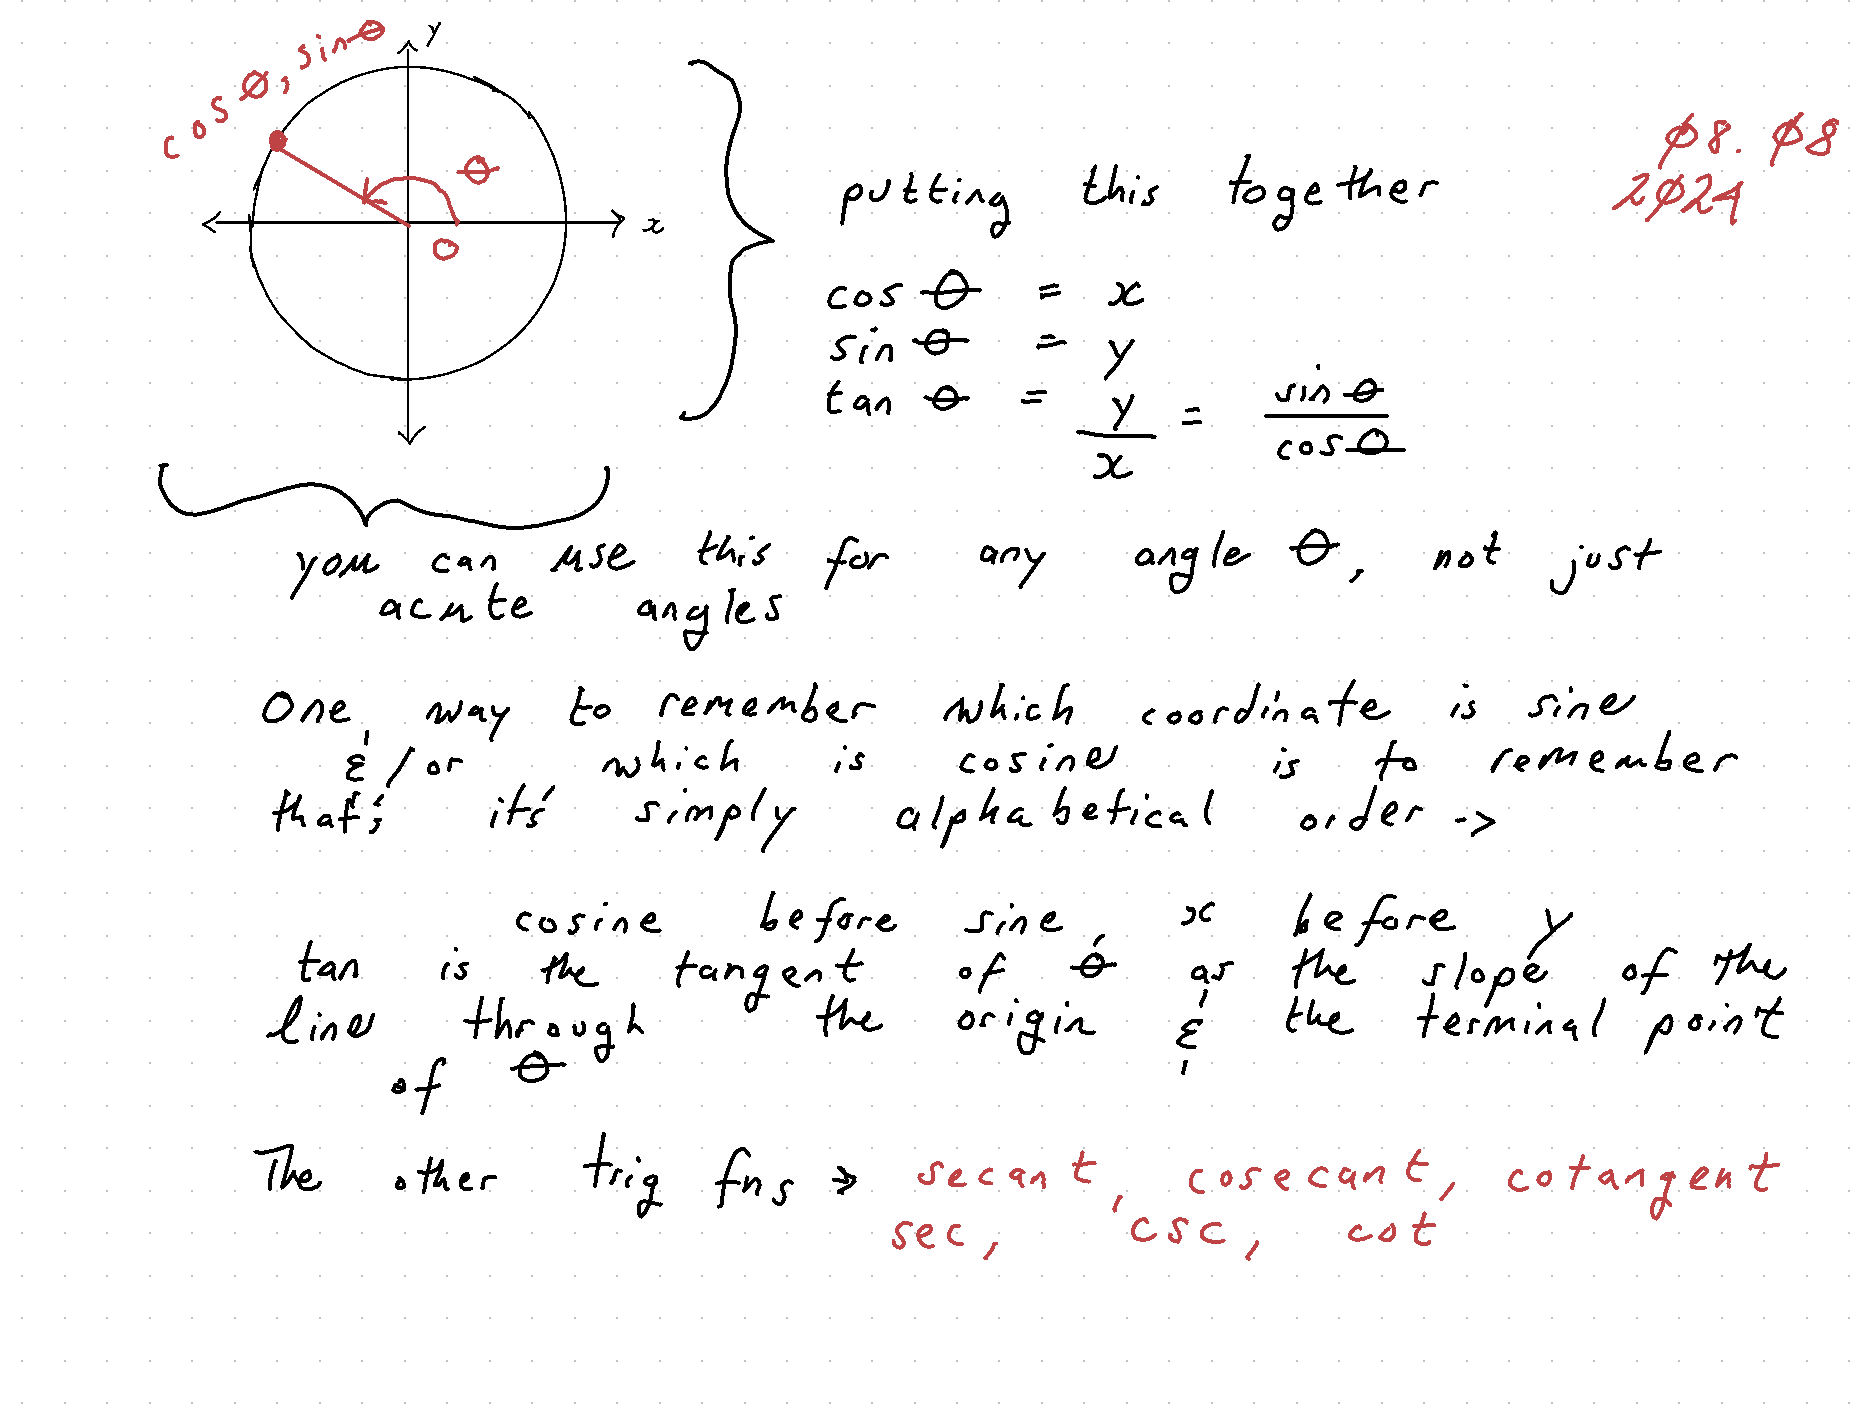 y
cos θ, sin θ
θ
x
0
putting this together
08.08
2024
cos θ = x
sin θ = y
tan θ = y/x = sin θ/cos θ
you can use this for any angle θ, not just
acute angles
One way to remember which coordinate is sine
&/or which is cosine is to remember
that; it's simply alphabetical order ->
cosine before sine, x before y
tan is the tangent of θ as the slope of the
line through the origin & the terminal point
of θ
The other trig fns → secant, cosecant, cotangent
sec, csc, cot